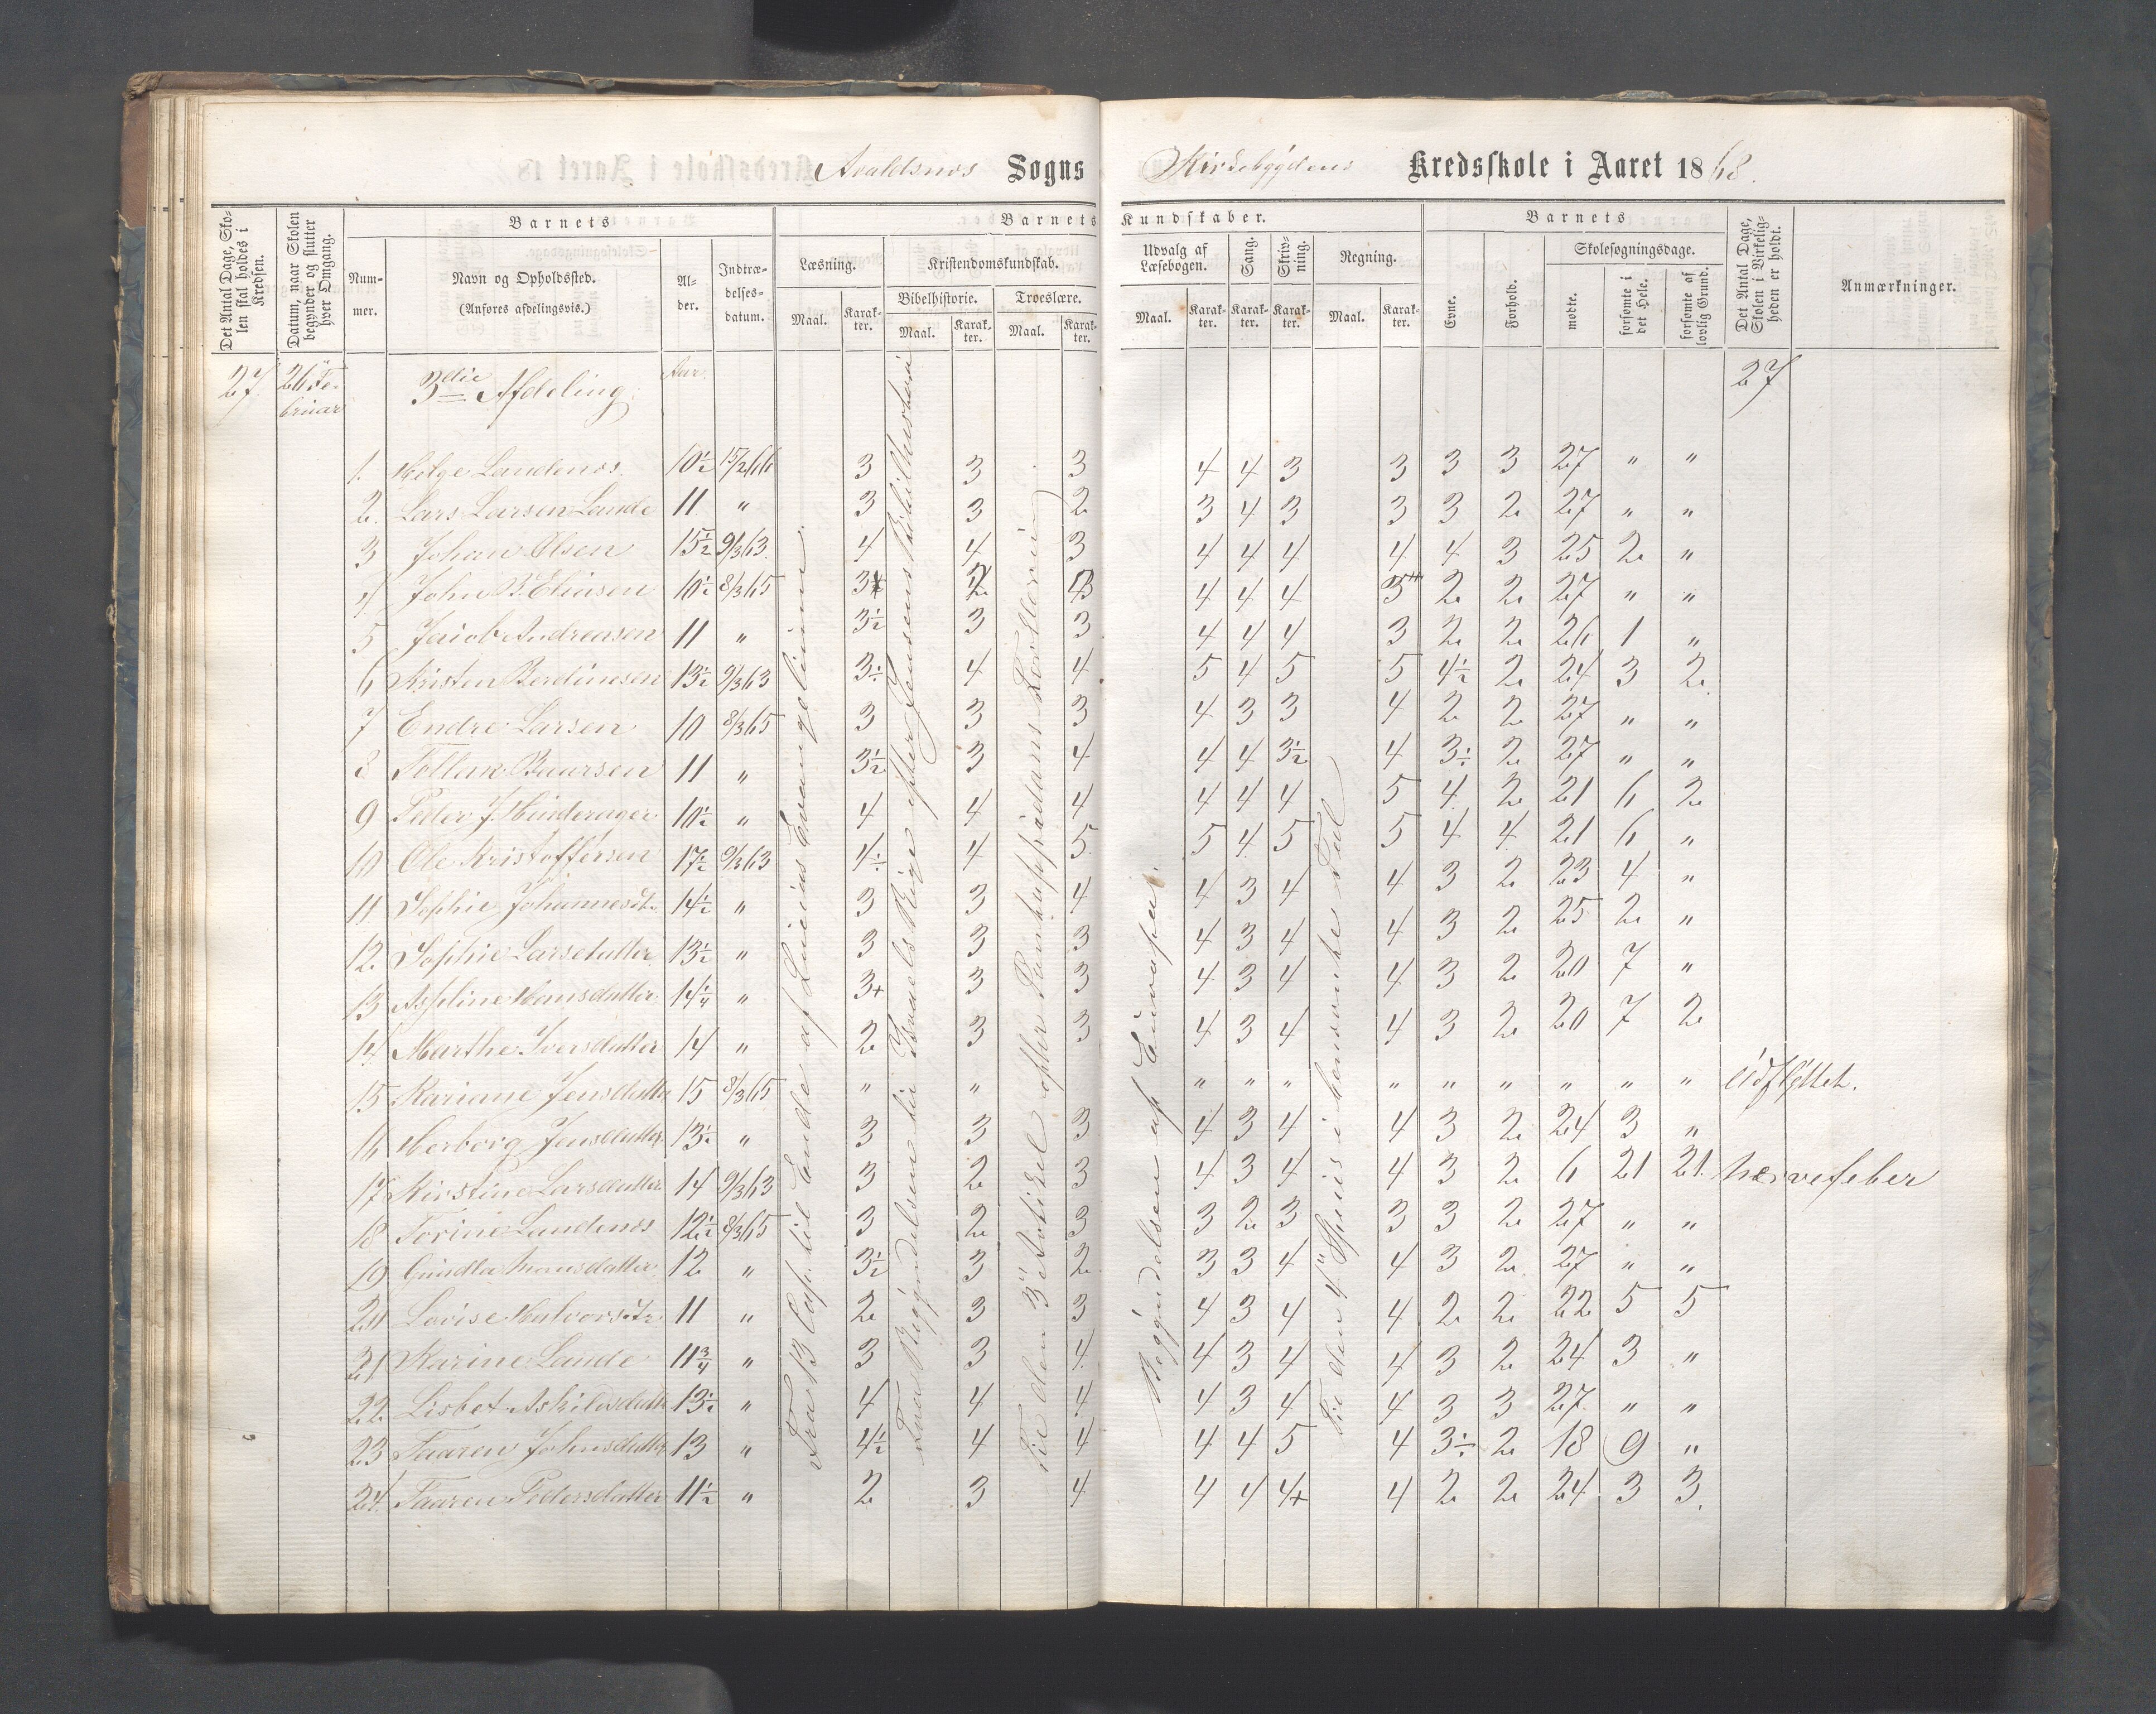 Avaldsnes Sogns Kirkebygdens Kredsskole i Aaret 1868.
Det Antal Dage, Skolen skal holdes i Kredsen.
Datum, naar Skolen begynder og slutter hver Omgang.
Barnets
Nummer.
Navn og Opholdssted.
(Anføres afdelingsvis.)
Alder.
Indtrædelsesdatum.
Barnets Kundskaber.
Læsning.
Maal.
Karakter.
Kristendomskundskab.
Bibelhistorie.
Maal.
Karakter.
Troeslære.
Maal.
Karakter.
Udvalg af Læsebogen.
Maal.
Karakter.
Sang.
Karakter.
Skrivning.
Karakter.
Regning.
Maal.
Karakter.
Barnets
Evne.
Forhold.
Skolesøgningsdage.
mødte.
forsømte i det Hele.
forsømte af lovlig Grund.
Det Antal Dage, Skolen i Virkeligheden er holdt.
Anmærkninger.
27. 26 Februar 3die Afdeling. Aar. 27
1. Helge Landenos. 10½ 15/2 66 3 3 3 4 4 3 3 3 3 27 " "
2. Lars Larsen Lande 11 " 3 3 2 3 4 3 3 3 2 27 " "
3 Johan Olsen 15½ 9/3 63. 4 4 3 4 4 4 4 4 3 25 2 "
4. John B. Eliasen 10½ 8/3 65 3 2 3 4 4 4 3 2 2 27 " "
5 Jacob Andreasen 11 " 3½ 3 3 4 4 4 3 2 2 26 1 "
6 Kristen Berdinesen 13½ 9/3 63 3÷ 4 4 5 4 5 5 4½ 2 24 3 2
7 Endre Larsen 10 8/3 65 3 3 3 4 3 3 4 2 2 27 " "
8 Tollak Baarsen 11 " 3½ 3 4 4 4 3½ 4 3÷ 2 27 " "
9 Peder J. Hinderager 10½ " 4 4 4 4 4 4 5 4. 2 21 6 2
10 Ole Kristoffersen 17½ 9/3 63 4÷ 4 5. 5 4 5 5 4 4 21 6 "
11 Sophie Johannesdtr 14½ " 3 3 4 4 3 4 4 3 2 23 4 "
12. Sophie Larsdatter 13½ " 3 3 3 4 3 4 4 3 2 25 2 "
13 Aspline Hansdatter 14¼ " 3+ 3 3 4 3 4 4 3 2 20 7 "
14. Marthe Iversdatter 14 " 2 3 3 4 3 4 4 3 2 20 7 2
15 Kariane Jensdatter 15 8/3 65 " " " " " " " " " " " Udflyttet.
16 Herborg Jensdatter 13½ " 3 3 3 4 3 4 4 3 2 24 3 "
17 Kirstine Larsdatter 14 9/3 63 3 2 3 4 3 4 4 3 2 6 21 21. Nervefeber
18 Torine Landenos 12½ 8/3 65 3 2 3 3 2 3 3 3 2 27 " "
19 Gundla Mansdatter 12 " 3½ 3 2 3 3 4 4 3 2 27 " "
20 Lovise Halvorsdtr 11 " 2 3 3 4 3 4 4 2 2 22 5 5
21 Karine Lande 11¾ " 3 3 4. 4 3 4 4 3 2 24 3 "
22 Lisbet Askildsdatter 13½ " 4 4 4 4 3 4 4 3 3 27. " "
23 Taaren Johnsdatter 13 " 4½ 4 4 4 4 5 4 3÷ 2 18 9 "
24. Taaren Pedersdatter 11½ " 2 3 4 4 4 4+ 4 2 2 24 3 3.
Fra 13 Cap. til Ende af Lucas Evangelium.
Fra Begyndelsen til Israels Rige efter Jensens Bibelhistorie
Til den 3" Artikel efter Pontoppidans Forklaring
Begyndelsen af Europa.
Til den 4" Spcies i benævnte Tal